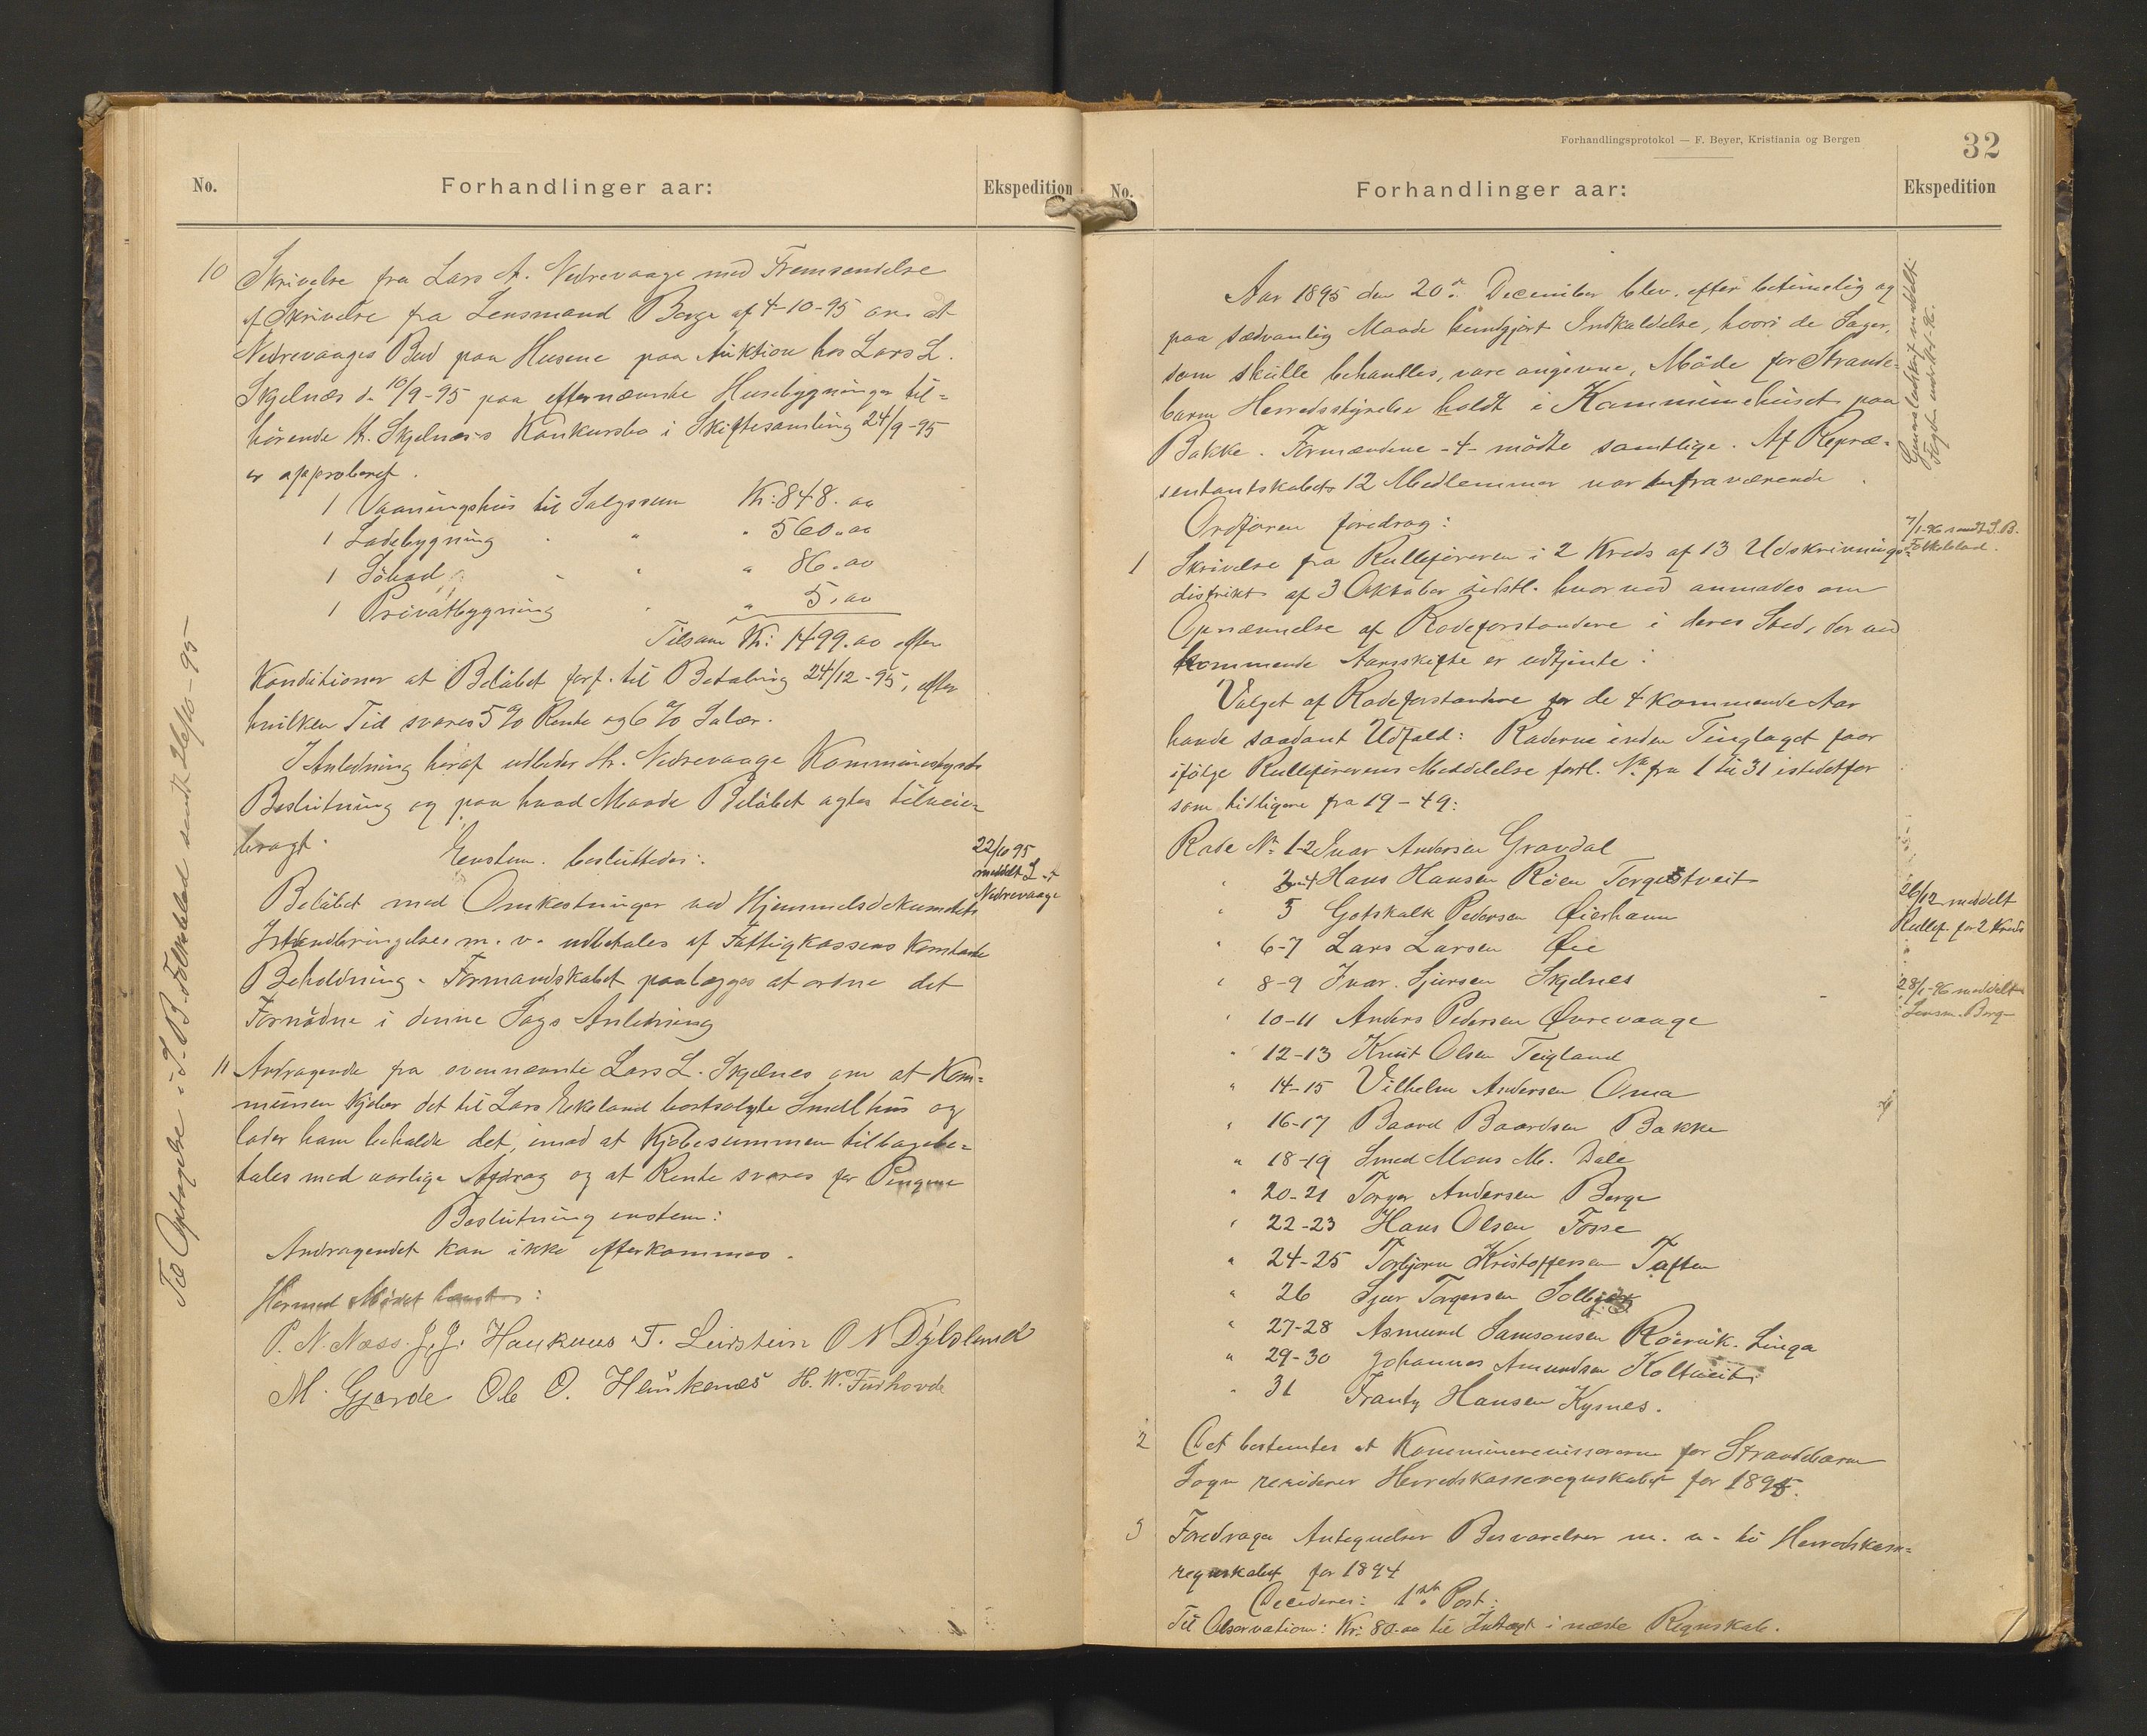 No.
Forhandlinger aar:
Ekspedition
10 Skrivelse fra Lars A. Nedrevaage med Fremsendelse
af Skrivelse fra Lensmand Berge af 4-10-95 om at
Nedrevaages Bud paa Husene paa Auktion hos Lars L.
Skjelnæs d. 10/9-95 paa efternævnte Husebygninger til=
hørende Hr. Skjelnæs's Konkursbo i Skiftesamling 24/9-95
er approberet.
1 Vaaningshus til Salgssum Kr: 848.00
1 Ladebygning " " 560.00
1 Söbod " " 86.00
1 Privatbygning " " 5.00
Tilsam Kr: 1499.00 efter
Konditioner at Belöbet forf. til Betaling 24/12-95, efter
hvilken Tid svares 5% Rente og 6% Salær.
I Anledning heraf udbeder Hr. Nedrevaage Kommunestyrets
Beslutning og paa hvad Maade Belöbet agtes tilveie=
bragt.
Enstem. besluttedes:
Belöbet med Omkostninger ved Hjemmelsdokumentets
Istandbringelse m. v. udbetales af Fattigkassens Kontante
Beholdning. Formandskabet paalægges at ordne det
Fornödne i denne Sags Anledning
22/10 95
meddelt L. A
Nedrevaage
11 Andragende fra ovennævnte Lars L. Skjelnes om at Kom=
munen kjöber det til Lars Ekeland bortsolgte Smedhus og
lader ham beholde det, imod at Kjöbesummen tilbagebe=
tales med aarlige Afdrag og at Rente svares for Pengene
Beslutning enstem:
Andragendet kan ikke efterkommes.
Hermed Mödet hævet:
P. N. Næss. J. J. Haukenes T. Leirstein O N Dÿbsland
M. Gjerde Ole O. Haukenæs H. W. Türhovde
Til Optagelse i S. B. Folkeblad sendt 26/10-95
Forhandlingsprotokol — F. Beyer, Kristiania og Bergen
32
No.
Forhandlinger aar:
Ekspedition
Aar 1895 den 20de December blev, efter betimelig og
paa sædvanlig Maade kundgjort Indkaldelse, hvori de Sager,
som skulle behandles, vare angivne, Möde for Strande=
barm Herredsstyrelse holdt i Kommunehuset paa
Bakke. Formændene -4- mödte samtlige. Af Repræ=
sentantskabets 12 Medlemmer var fraværende
Ordfören foredrog:
7/1-96 sendt S. B.
Folkeblad.
1 Skrivelse fra Rulleföreren i 2 Kreds af 13 Udskrivnings=
distrikt af 3 Oktober sidstl. hvorved anmodes om
Opnævnelse af Rodeforstandere i deres Sted, der ved
kommende Aarsskifte er udtjente:
Valget af Rodeforstandere for de 4 kommende Aar
havde saadant Udfald: Roderne inden Tinglaget faar
ifölge Rulleförerens Meddelelse fortl. No. fra 1 til 31 istedetfor
som tidligere fra 19-49:
Rode No. 1-2 Ivar Andersen Gravdal
" Hans Hansen Röen Torgestveit
" 5 Gotskalk Pedersen Øierhavn
" 6-7 Lars Larsen Øie
" 8-9 Ivar Sjursen Skjelnes
" 10-11 Anders Pedersen Øvrevaage
" 12-13 Knut Olsen Teigland
" 14-15 Vilhelm Andersen Oma
" 16-17 Baard Baardsen Bakke
" 18-19 Smed Mons M. Dale
" 20-21 Torger Andersen Berge
" 22-23 Hans Olsen Fosse
" 24-25 Torbjørn Kristoffersen Taften
" 26 Sjur Torgersen
" 27-28 Asmund Samsonsen Röirvik. Linga
" 29-30 Johannes Amundsen Koltveit
" 31 Frantz Hansen Kysnes.
26/12 meddelt
Rullef. for 2 Kreds
28/1-96 meddelt
Lensm. Berge
2 Det bestemtes at Kommunerevisorerne for Strandebarm
Sogn reviderer Herredskasseregnskabet for 1895.
3 Foredroges Antegnelser Besvarelser m. v. til Herredskasse=
regnskabet for 1894
Decideres: 1ste Post:
Til Observation: Kr: 80.00 til Indtægt i næste Regnskab.